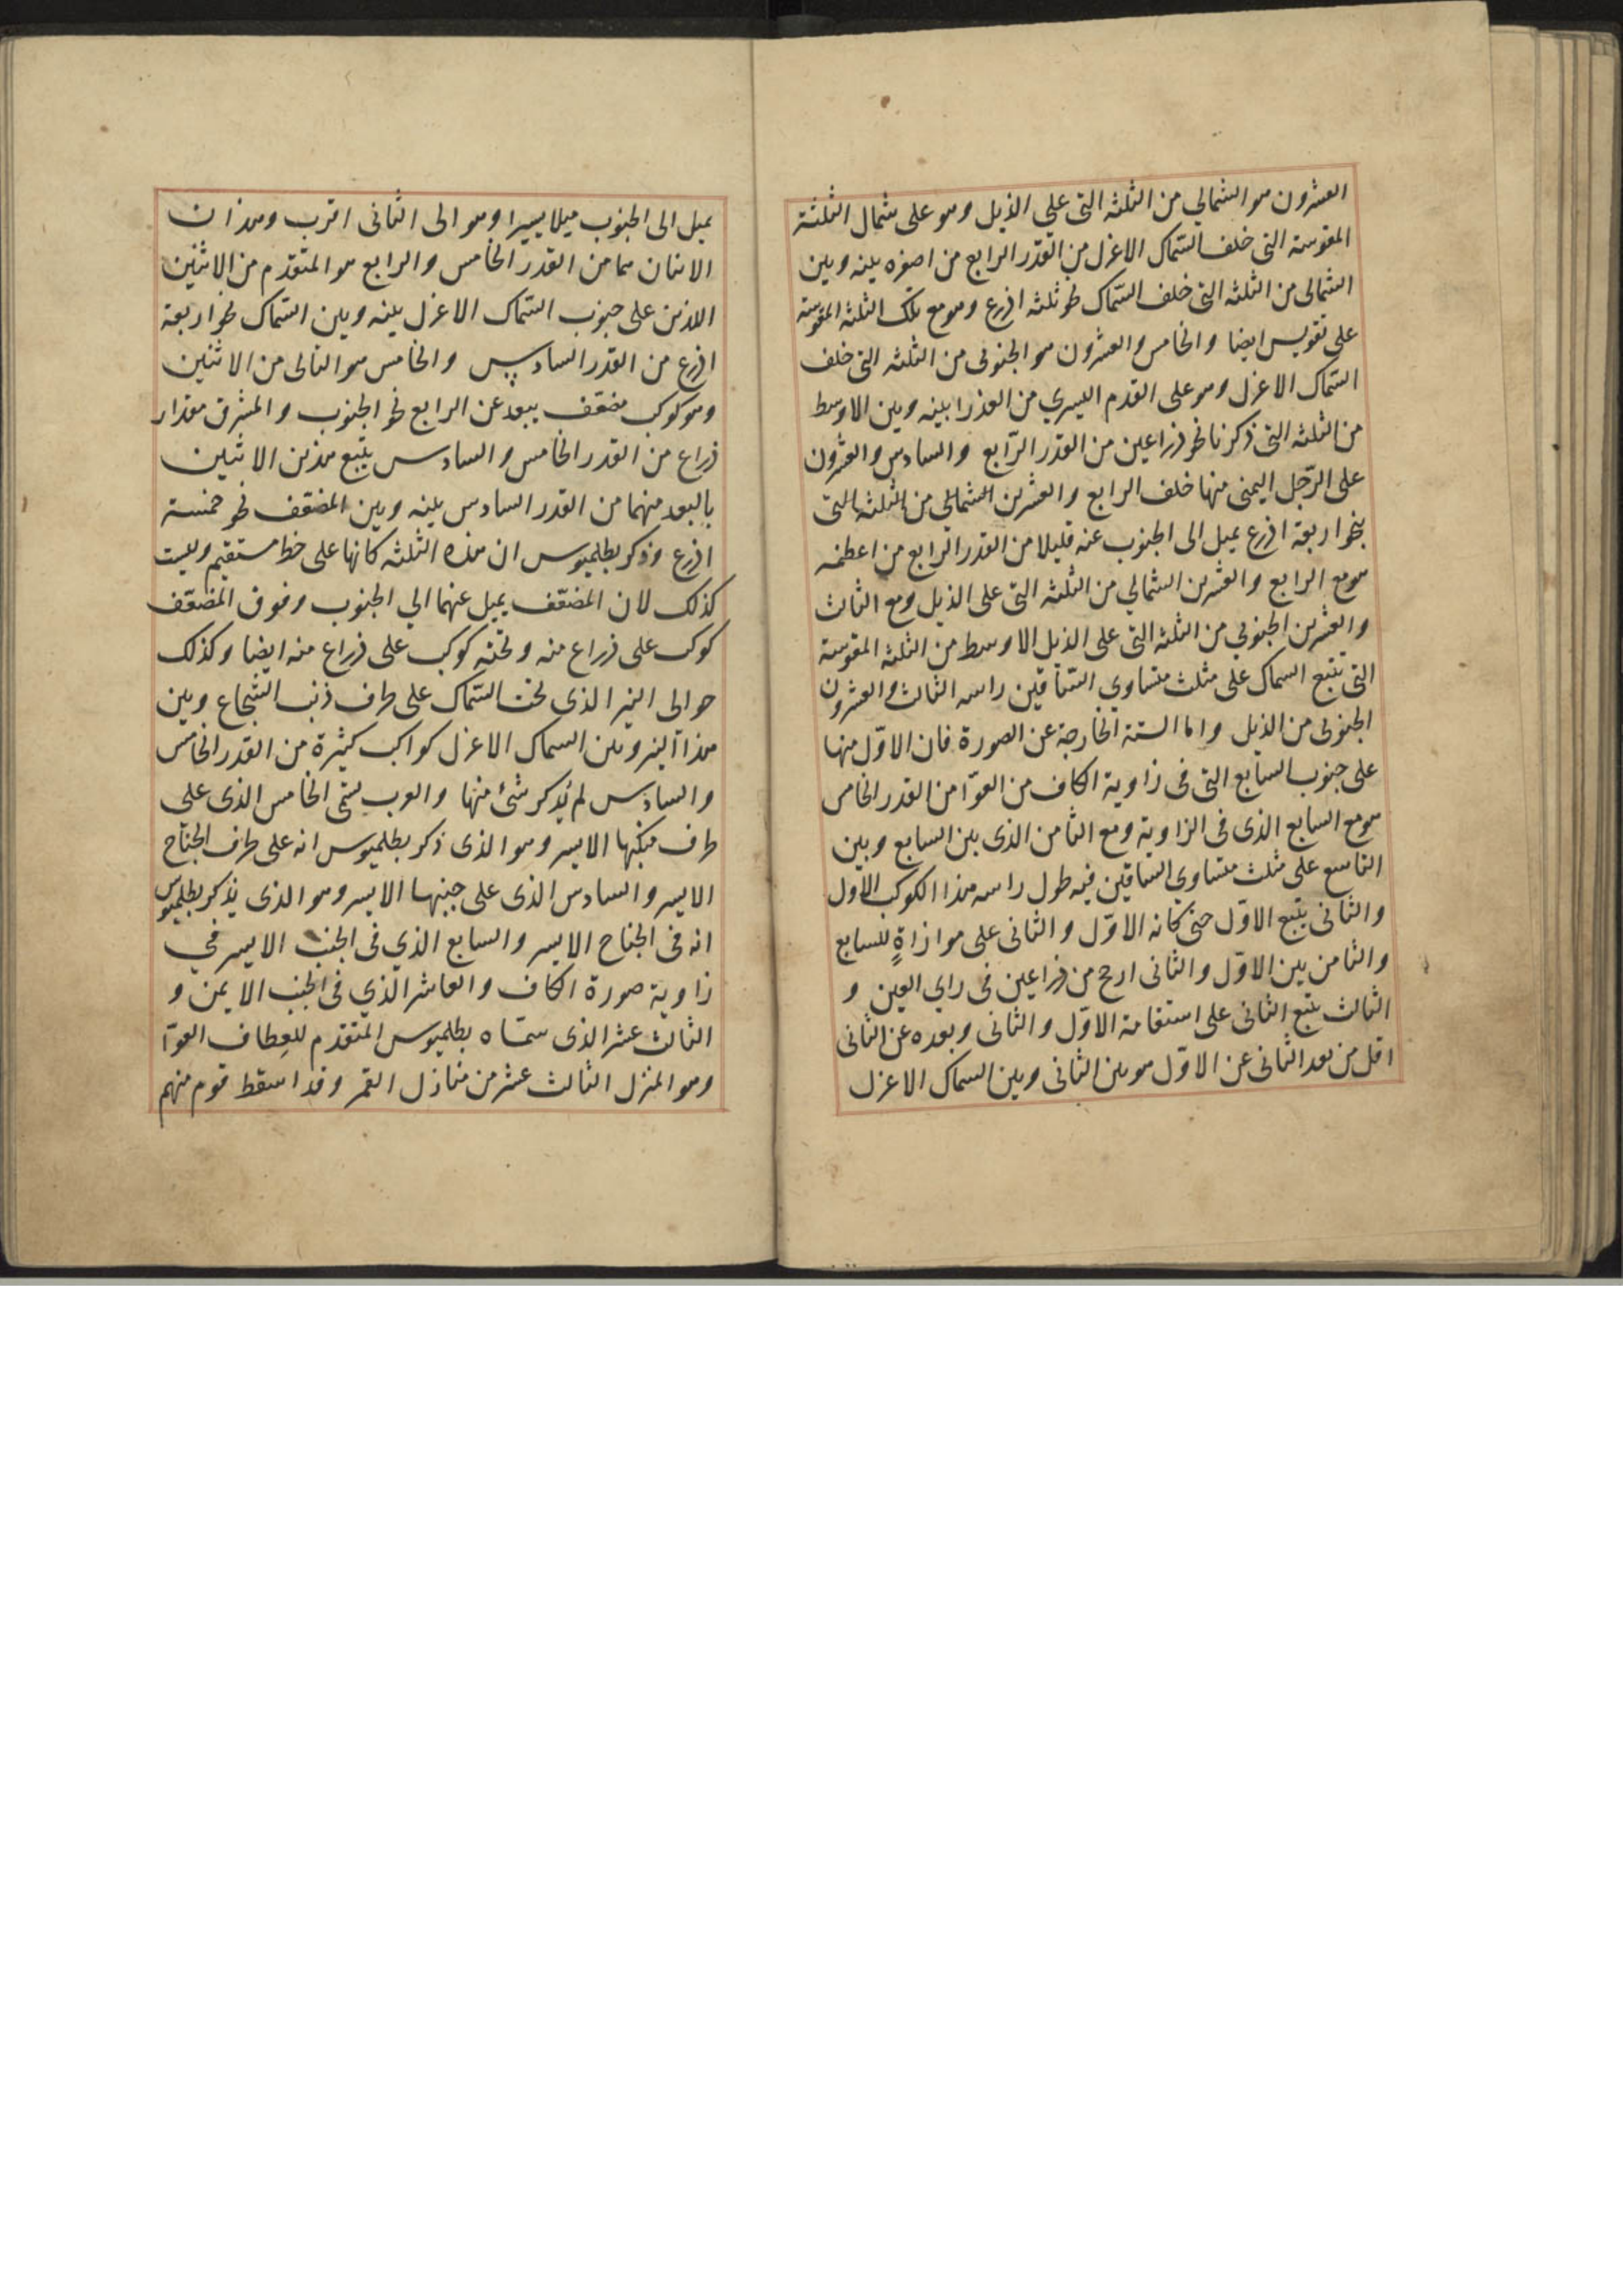 العشرون هو الشمالي من الثلثه التي علي الذيل وهو على شمال الثلثة
المقوسة التى خلف السّماك الاعزل من القدر الرابع من اصغره بينه وبين
الشمالى من الثلثه التى خلف السّماك نحو ثلثه اذرع وهو مع تلك الثلثه المقوسة
على تقويس ايضا والخامس والعشرون هو الجنوبى من الثلثه التى خلف
السّماك الاعزل وهو على القدم اليسري من العذرا بينه وبين الاوسط
من الثلثه التى ذكرنا نحو ذراعين من القدر الرّابع والسادس والعشرون
على الرّجل اليمنى منها خلف الرابع والعشرين الشمالي من الثلثه التى
بنحو اربعة اذرع يميل الى الجنوب عنه قليلا من القدر الرابع من اعظمه
هو مع الرابع والعشرين الشمالي من الثلثه التى على الذيل ومع الثالث
والعشرين الجنوبي من الثلثه التى على الذيل الاوسط من الثلثه المقوسة
التى تتبع السماك على مثلث متساوي السّاقين راسه الثالث والعشرون
الجنوبى من الذيل واما الستة الخارجة عن الصورة فان الاوّل منها
على جنوب السابع التى فى زاوية الكاف من العوّا من القدر الخامس
هو مع السابع الذى فى الزاوية ومع الثامن الذى بين السابع وبين
التاسع على مثلث متساوي الساقين فيه طول راسه هذا الكوكب الاول
والثانى يتبع الاوّل حتى كانه الاوّل والثانى على موازاةٍ للسابع
والثامن بين الاوّل والثانى ارجح من ذراعين فى راي العين و
الثالث يتبع الثانى على استقامة الاوّل والثانى وبعده عن الثانى
اقل من بعد الثانى عن الاوّل هو بين الثانى وبين السماك الاعزل
يميل الى الجنوب ميلا يسيرا وهو الى الثانى اقرب وهذان
الاثنان هما من القدر الخامس والرابع هو المتقدم من الاثنين
اللذين على جنوب السّماك الاعزل بينه وبين السّماك نحو اربعة
اذرع من القدر السادس والخامس هو التالى من الاثنين
وهو كوكب مضعّف يبعد عن الرابع نحو الجنوب والمشرق مقدار
ذراع من القدر الخامس والسادس يتبع هذين الاثنين
بالبعد منهما من القدر السادس بينه وبين المضعّف نحو خمسة
اذرع وذكر بطلميوس ان هذه الثلثه كانها على خط مستقيم وليست
كذلك لان المضعّف يميل عنهما الي الجنوب وفوق المضعّف
كوكب على ذراع منه وتحته كوكب على ذراع منه ايضا وكذلك
حوالى النير الذى تحت السّماك على طرف ذنب الشجاع وبين
هذا النير وبين السماك الاعزل كواكب كثيرة من القدر الخامس
والسادس لم يُذكر شئ منها والعرب تسمّى الخامس الذى على
طرف منكبها الايسر وهو الذى ذكر بطلميوس انه على طرف الجناح
الايسر والسادس الذى على جنبها الايسر وهو الذى يذكر بطلميوس
انه فى الجناح الايسر والسابع الذي فى الجنب الايسر في
زاوية صورة الكاف والعاشر الذي فى الجنب الايمن و
الثالث عشر الذى سمّاه بطلميوس المتقدم للعِطاف العوّآ
وهو المنزل الثالث عشر من منازل القمر وقد اسقط قوم منهم